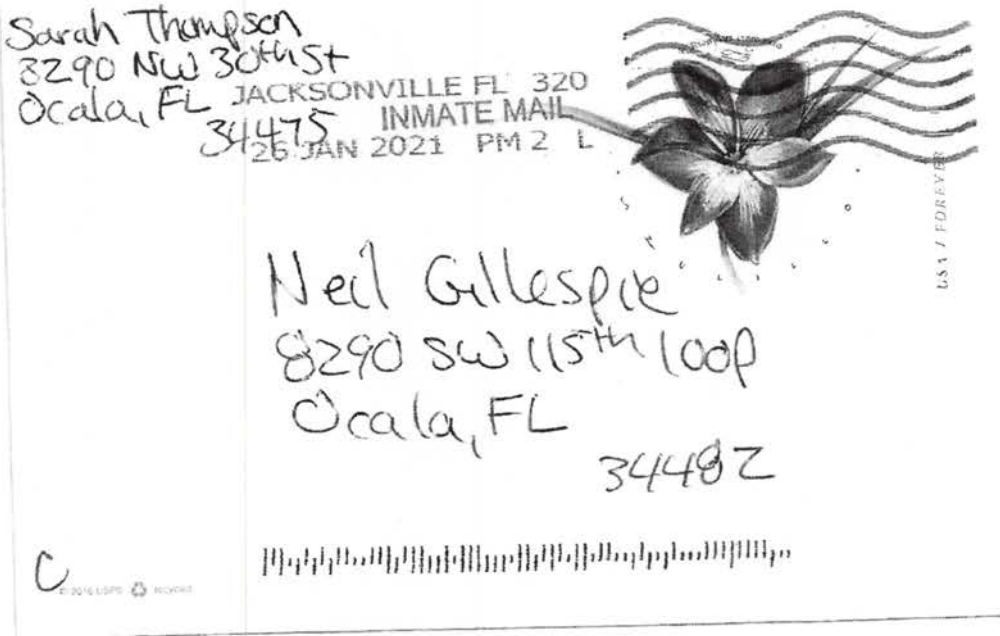 Sarah Thompson
3290 NW 30th St
Ocala, FL
34475
JACKSONVILLE FL 320
INMATE MAIL
26 JAN 2021 PM 2 L
USA / FOREVER
Neil Gillespie
8290 SW 115th loop
Ocala, FL
34482
C
© 2016 USPS